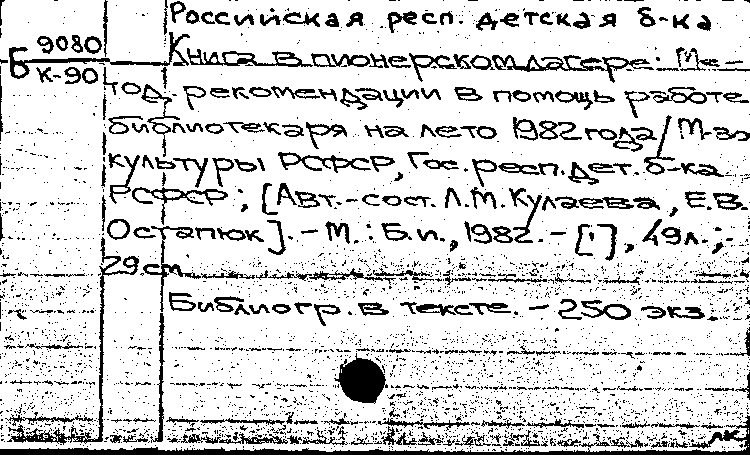 Российская респ. детская б-ка
Б 9080
К-90
Книга в пионерском лагере: Ме-
тод. рекомендации в помощь работе
библиотекаря на лето 1982 года / М-во
культуры РСФСР, Гос. респ. дет. б-ка
РСФСР ; [Авт.-сост. Л.М. Кулаева, Е.В.
Остапюк]. - М. : Б.и., 1982. - [1], 49л.;
29 см.
Библиогр. в тексте. - 250 экз.
лк